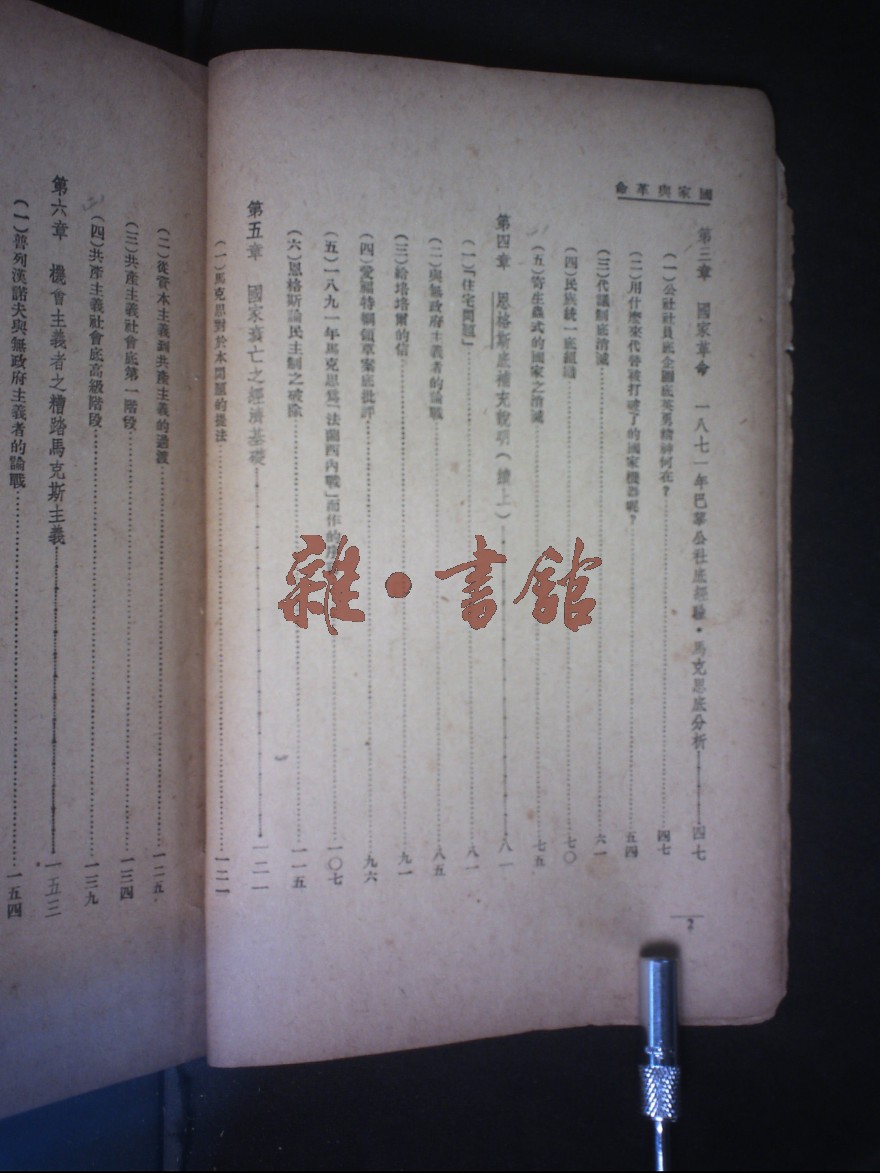 國家與革命
第三章 國家革命 一八七一年巴黎公社底經驗・馬克思底分析 四七
(一)公社社員底企圖底英勇精神何在? 四七
(二)用什麼來代替被打破了的國家機器呢? 五四
(三)代議制底消滅 六一
(四)民族統一底組織 七〇
(五)寄生蟲式的國家之消滅 七五
第四章 恩格斯底補充說明(續上) 八一
(一)「住宅問題」 八一
(二)與無政府主義者的論戰 八五
(三)給培培爾的信 九一
(四)愛福特綱領草案底批評 九六
(五)一八九一年馬克思爲「法蘭西內戰」而作的序 一〇七
(六)恩格斯論民主制之破除 一一五
第五章 國家衰亡之經濟基礎 一二一
(一)馬克思對於本問題的提法 一二一
(二)從資本主義到共產主義的過渡 一二五
(三)共產主義社會底第一階段 一三四
(四)共產主義社會底高級階段 一三九
第六章 機會主義者之糟踏馬克斯主義 一五三
(一)普列漢諾夫與無政府主義者的論戰 一五四
2
雜・書館